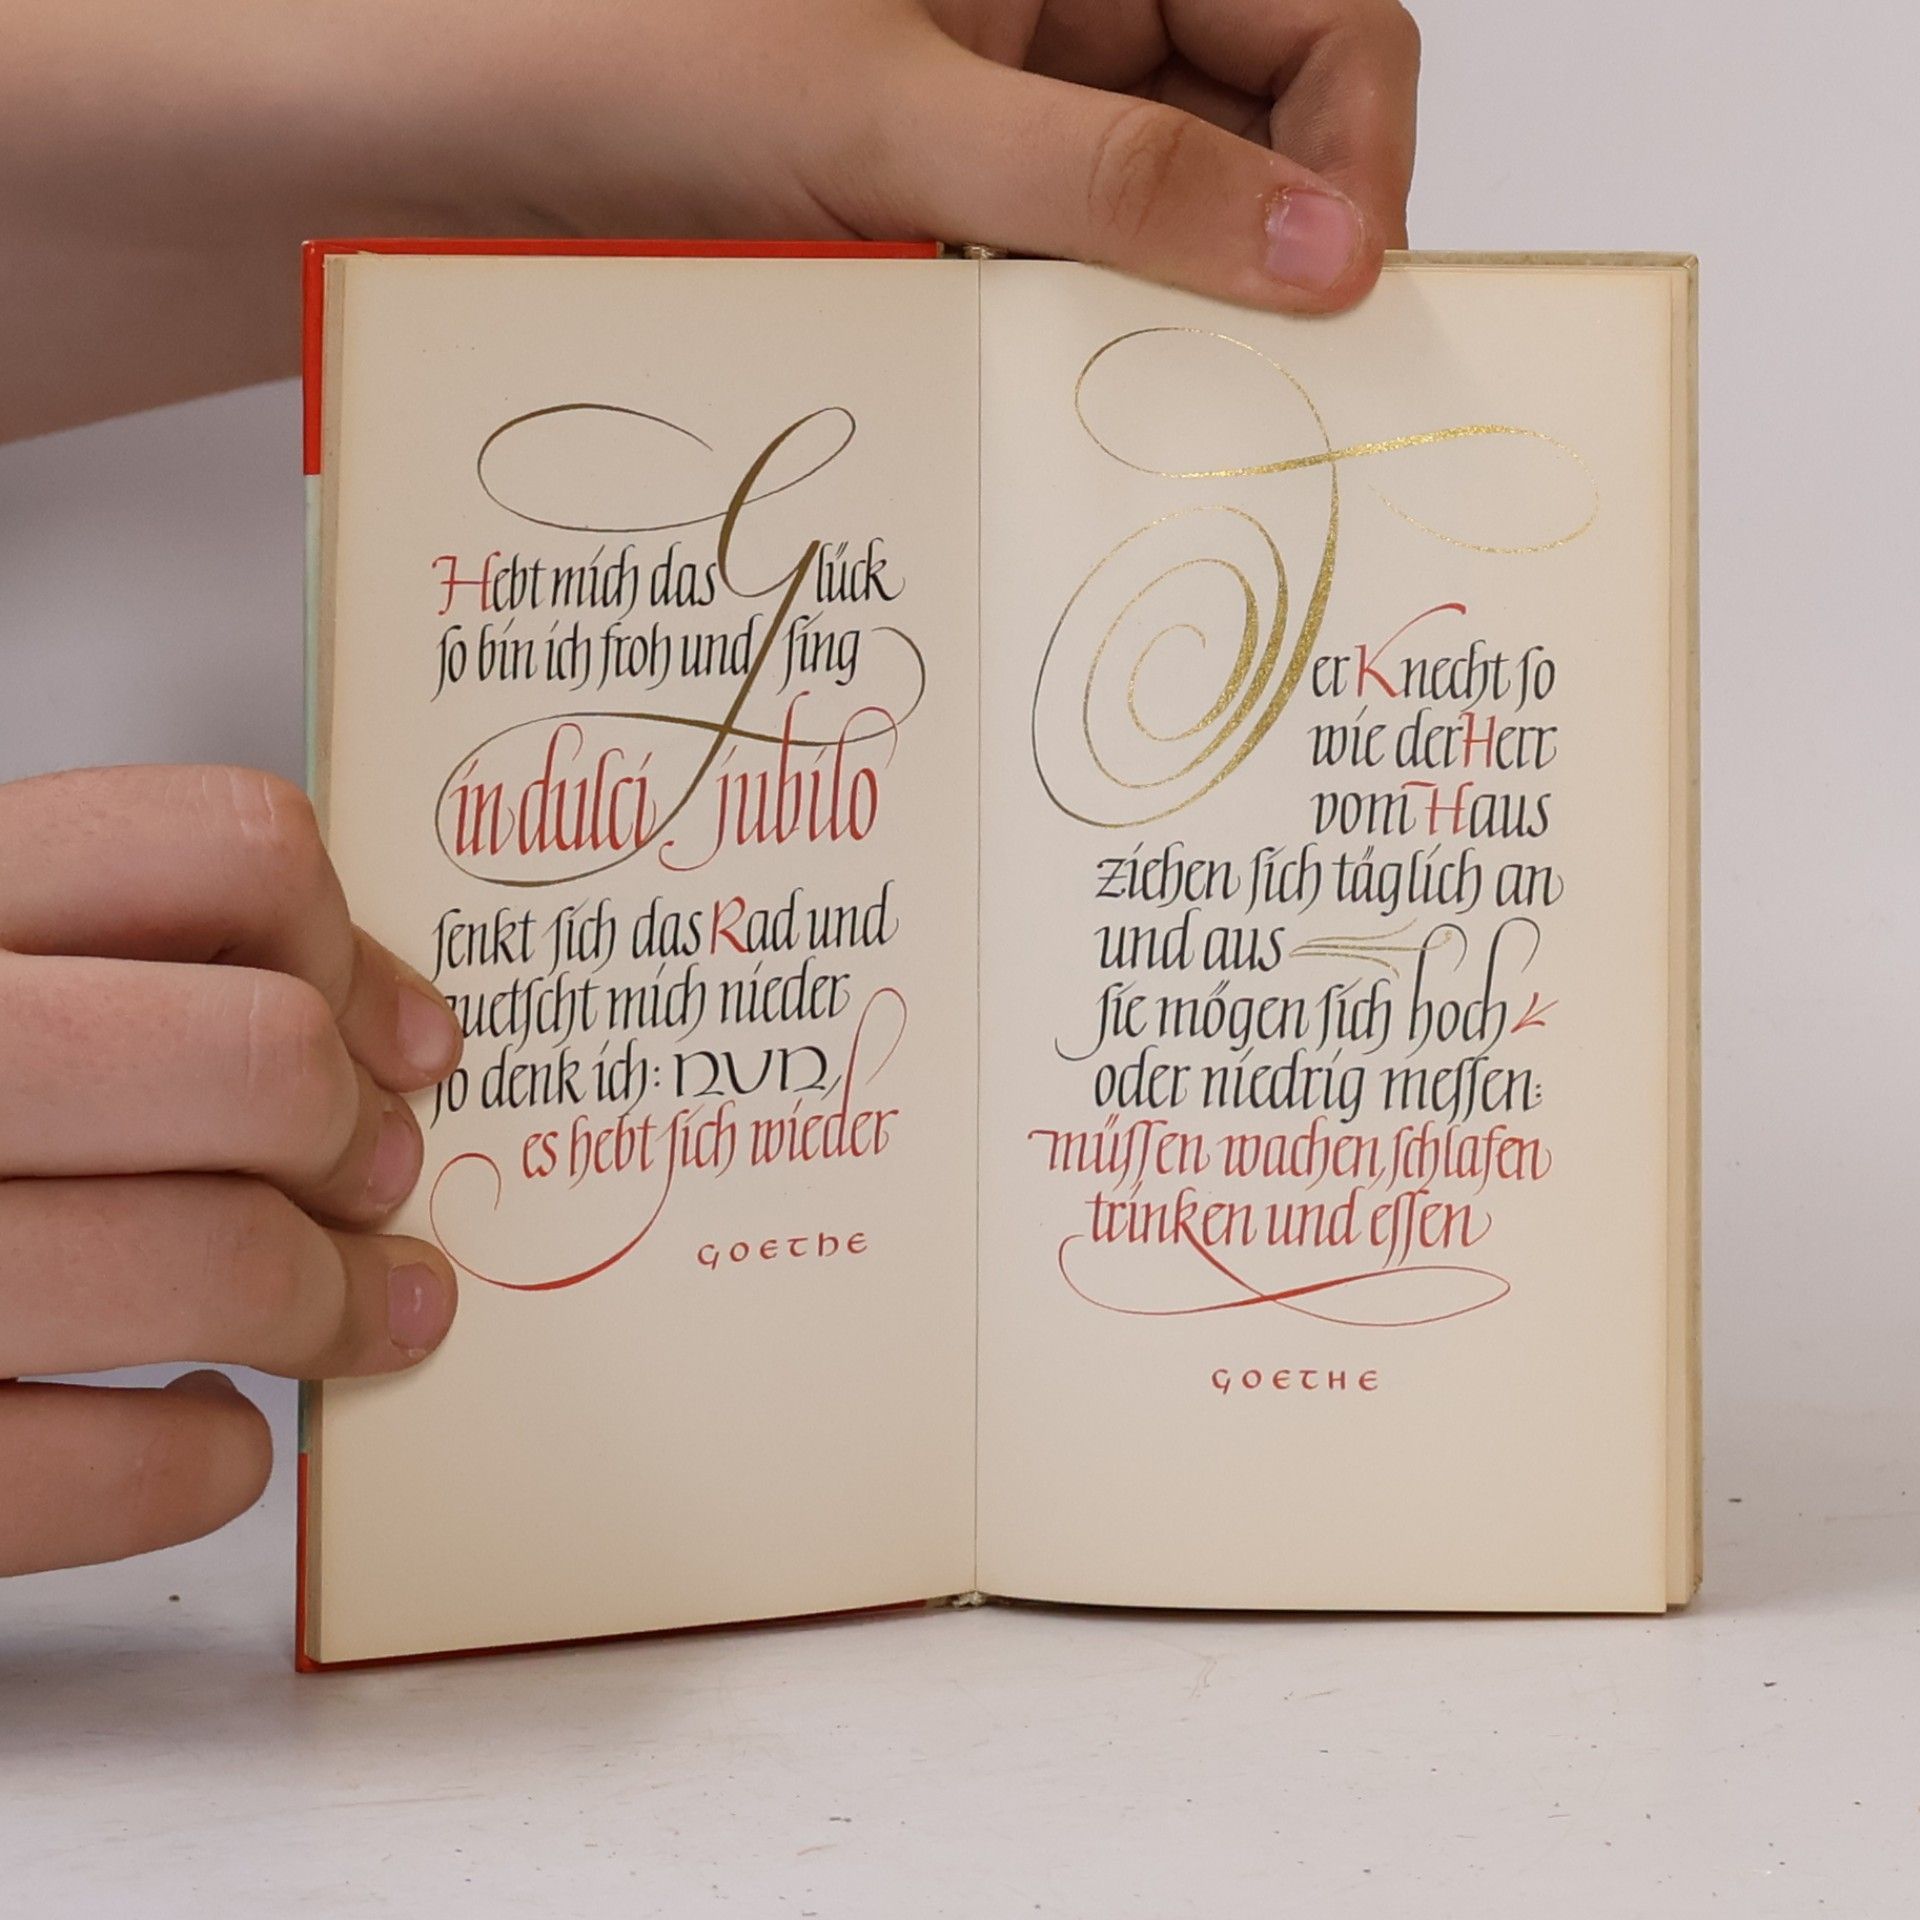 Hebt mich das Glück
so bin ich froh und sing
in dulci jubilo
senkt sich das Rad und
quetscht mich nieder
so denk ich: NUN,
es hebt sich wieder
GOEThE
Der Knecht so
wie der Herr
vom Haus
ziehen sich täglich an
und aus
sie mögen sich hoch
oder niedrig messen:
müssen wachen, schlafen
trinken und essen
GOETHE